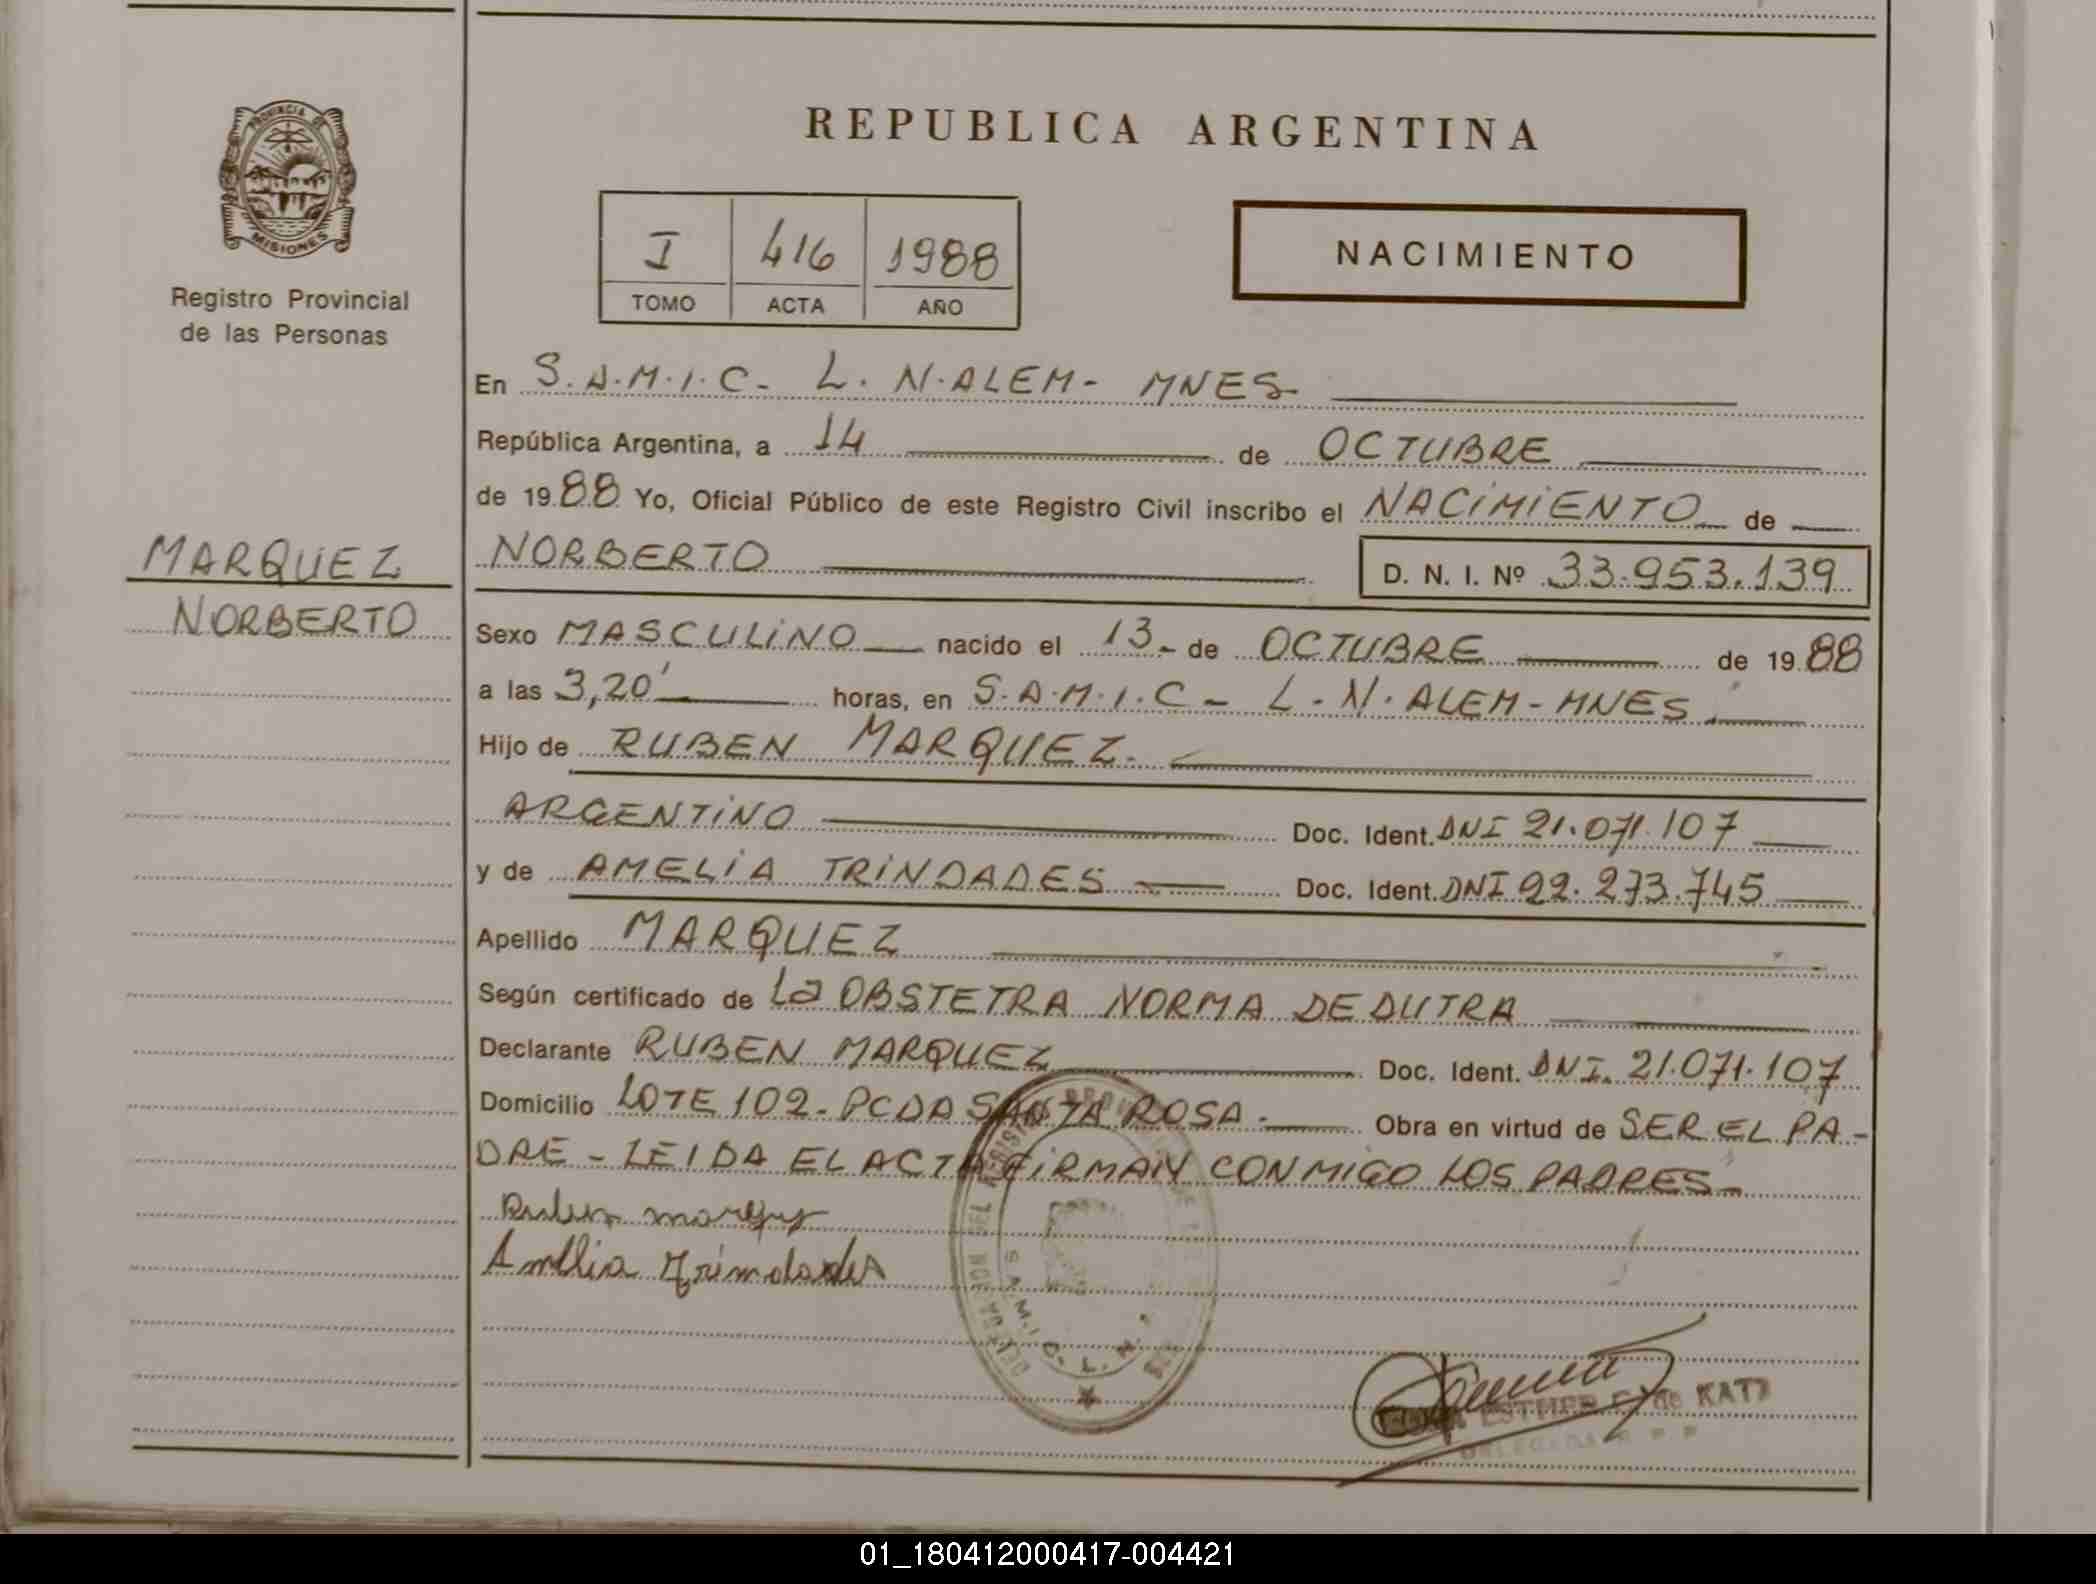 PROVINCIA DE
MISIONES
Registro Provincial
de las Personas
MARQUEZ
NORBERTO
REPUBLICA ARGENTINA
I 416 1988
TOMO ACTA AÑO
NACIMIENTO
En S.A.M.I.C- L. N. ALEM- MNES
República Argentina, a 14 de OCTUBRE
de 1988 Yo, Oficial Público de este Registro Civil inscribo el NACIMIENTO de
NORBERTO D. N. I. Nº 33.953.139
Sexo MASCULINO nacido el 13 de OCTUBRE de 1988
a las 3,20' horas, en S.A.M.I.C- L. N. ALEM-MNES
Hijo de RUBEN MARQUEZ.
ARGENTINO Doc. Ident. DNI 21.071.107
y de AMELIA TRINDADES Doc. Ident. DNI 22.273.745
Apellido MARQUEZ
Según certificado de La OBSTETRA NORMA DE DUTRA
Declarante RUBEN MARQUEZ Doc. Ident. DNI. 21.071.107
Domicilio LOTE 102- PCDA SANTA ROSA- Obra en virtud de SER EL PA-
DRE - LEIDA EL ACTA FIRMAN CONMIGO LOS PADRES-
Ruben marquez
Amelia Trindades
S.A.M.I.C. L. N.
ESTHER de KATZ
01_180412000417-004421